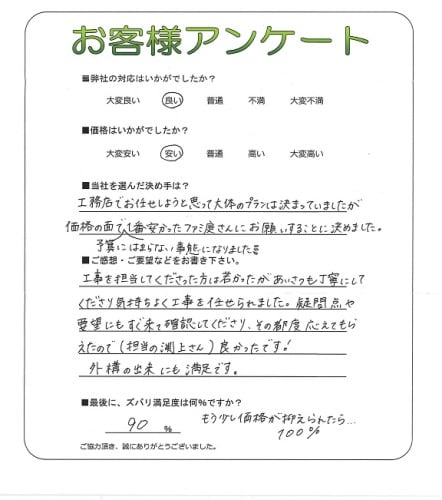 お客様アンケート
■弊社の対応はいかがでしたか?
大変良い 良い 普通 不満 大変不満
■価格はいかがでしたか?
大変安い 安い 普通 高い 大変高い
■当社を選んだ決め手は?
工務店でお任せしようと思って大体のプランは決まっていましたが
価格の面で1番安かったファミ庭さんにお願いすることに決めました。
予算にはまらない事態になりました!!
■ご感想・ご要望などをお書き下さい。
工事を担当してくださった方は若かったがあいさつも丁寧にして
くださり気持ちよく工事を任せられました。疑問点や
要望にもすぐ来て確認してくださり、その都度応えてもら
えたので(担当の渕上さん)良かったです!
外構の出来にも満足です。
■最後に、ズバリ満足度は何%ですか?
90 % もう少し価格が抑えられたら…
100%
ご協力頂き、誠にありがとうございました。